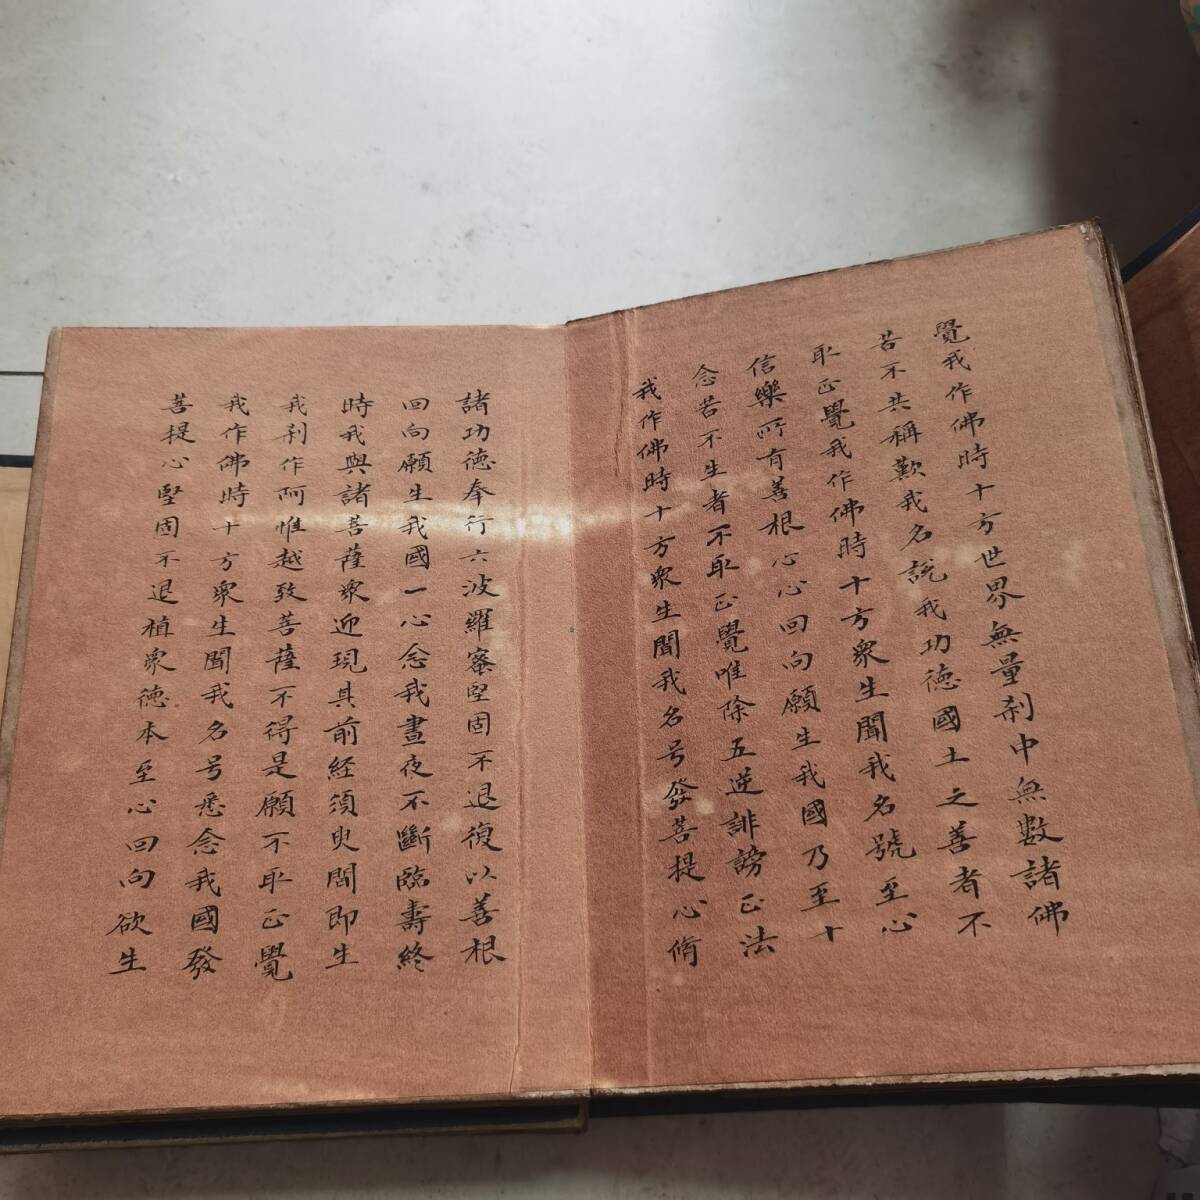 覺我作佛時十方世界無量刹中無數諸佛
若不共稱歎我名說我功德國土之善者不
取正覺我作佛時十方衆生聞我名號至心
信樂所有善根心心回向願生我國乃至十
念若不生者不取正覺唯除五逆誹謗正法
我作佛時十方衆生聞我名号發菩提心脩
諸功德奉行六波羅蜜堅固不退復以善根
回向願生我國一心念我晝夜不斷臨壽終
時我與諸菩薩衆迎現其前經須臾間即生
我刹作阿惟越致菩薩不得是願不取正覺
我作佛時十方衆生聞我名号悉念我國發
菩提心堅固不退植衆德本至心回向欲生